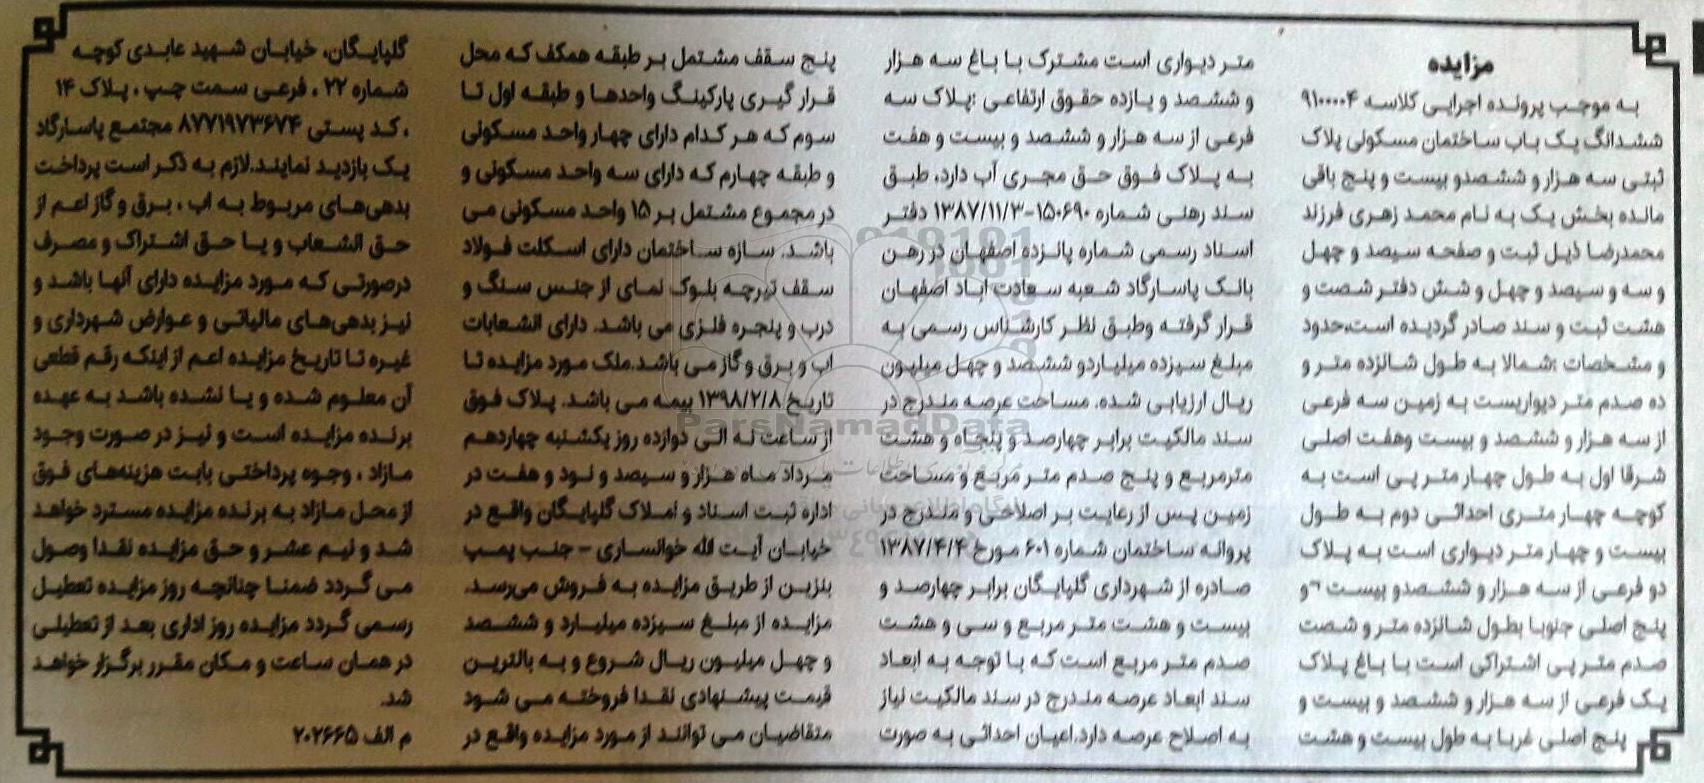 مزایده
به موجب پرونده اجرایی کلاسه ۹۱۰۰۰۰۴
ششدانگ یک باب ساختمان مسکونی پلاک
ثبتی سه هزار و ششصدو بیست و پنج باقی
مانده بخش یک به نام محمد زهری فرزند
محمدرضا ذیل ثبت و صفحه سیصد و چهل
و سه و سیصد و چهل و شش دفتر شصت و
هشت ثبت و سند صادر گردیده است،حدود
و مشخصات :شمالا به طول شانزده متر و
ده صدم متر دیواریست به زمین سه فرعی
از سه هزار و ششصد و بیست وهفت اصلی
شرقا اول به طول چهار متر پی است به
کوچه چهار متری احداثی دوم به طول
بیست و چهار متر دیواری است به پلاک
دو فرعی از سه هزار و ششصدو بیست و
پنج اصلی جنوبا بطول شانزده متر و شصت
صدم متر پی اشتراکی است با باغ پلاک
یک فرعی از سه هزار و ششصد و بیست و
پنج اصلی غربا به طول بیست و هشت
متر دیواری است مشترک با باغ سه هزار
و ششصد و یازده حقوق ارتفاعی :پلاک سه
فرعی از سه هزار و ششصد و بیست و هفت
به پلاک فوق حق مجری آب دارد، طبق
سند رهنی شماره ۱۵۰۶۹۰-۱۳۸۷/۱۱/۳ دفتر
اسناد رسمی شماره پانزده اصفهان در رهن
بانک پاسارگاد شعبه سعادت آباد اصفهان
قرار گرفته وطبق نظر کارشناس رسمی به
مبلغ سیزده میلیاردو ششصد و چهل میلیون
ریال ارزیابی شده، مساحت عرصه مندرج در
سند مالکیت برابر چهارصد و پنجاه و هشت
مترمربع و پنج صدم متر مربع و مساحت
زمین پس از رعایت بر اصلاحی و مندرج در
پروانه ساختمان شماره ۶۰۱ مورخ ۱۳۸۷/۴/۴
صادره از شهرداری گلپایگان برابر چهارصد و
بیست و هشت متر مربع و سی و هشت
صدم متر مربع است که با توجه به ابعاد
سند ابعاد عرصه مندرج در سند مالکیت نیاز
به اصلاح عرصه دارد.اعیان احداثی به صورت
پنج سقف مشتمل بر طبقه همکف که محل
قرار گیری پارکینگ واحدها و طبقه اول تا
سوم که هر کدام دارای چهار واحد مسکونی
و طبقه چهارم که دارای سه واحد مسکونی و
در مجموع مشتمل بر ۱۵ واحد مسکونی می
باشد. سازه ساختمان دارای اسکلت فولاد
سقف تیرچه بلوک نمای از جنس سنگ و
درب و پنجره فلزی می باشد. دارای انشعابات
اب و برق و گاز می باشد.ملک مورد مزایده تا
تاریخ ۱۳۹۸/۲/۸ بیمه می باشد. پلاک فوق
از ساعت نه الی دوازده روز یکشنبه چهاردهم
مرداد ماه هزار و سیصد و نود و هفت در
اداره ثبت اسناد و املاک گلپایگان واقع در
خیابان آیت الله خوانساری - جنب پمپ
بنزین از طریق مزایده به فروش می‌رسد.
مزایده از مبلغ سیزده میلیارد و ششصد
و چهل میلیون ریال شروع و به بالاترین
قیمت پیشنهادی نقدا فروخته می شود
متقاضیان می توانند از مورد مزایده واقع در
گلپایگان، خیابان شهید عابدی کوچه
شماره ۲۲ ، فرعی سمت چپ ، پلاک ۱۴
، کد پستی ۸۷۷۱۹۷۳۶۷۴ مجتمع پاسارگاد
یک بازدید نمایند.لازم به ذکر است پرداخت
بدهی‌های مربوط به اب ، برق و گاز اعم از
حق انشعاب و یا حق اشتراک و مصرف
درصورتی که مورد مزایده دارای آنها باشد و
نیز بدهی‌های مالیاتی و عوارض شهرداری و
غیره تا تاریخ مزایده اعم از اینکه رقم قطعی
آن معلوم شده و یا نشده باشد به عهده
برنده مزایده است و نیز در صورت وجود
مازاد ، وجوه پرداختی بابت هزینه‌های فوق
از محل مازاد به برنده مزایده مسترد خواهد
شد و نیم عشر و حق مزایده نقدا وصول
می گردد ضمنا چنانچه روز مزایده تعطیل
رسمی گردد مزایده روز اداری بعد از تعطیلی
در همان ساعت و مکان مقرر برگزار خواهد
شد.
م الف ۲۰۲۶۶۵
ParsNamadData